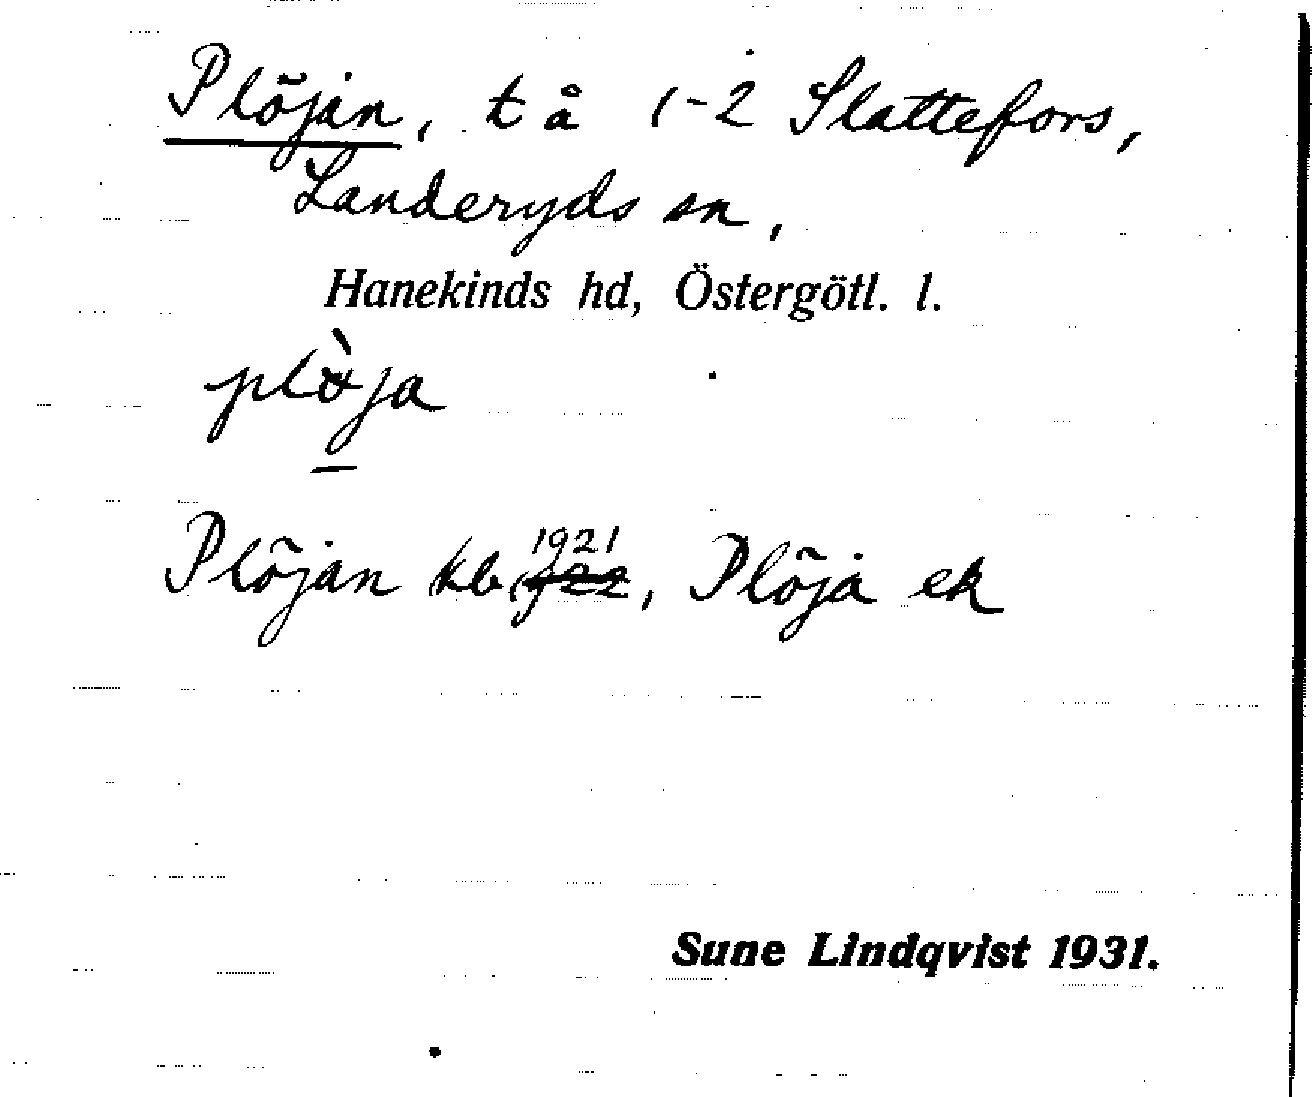 Plöjan, t å 1-2 Slattefors,
Landeryds sn,
Hanekinds hd, Östergötl. l.
plò̈ja
Plöjan kb 1921, Plöja ek
Sune Lindqvist 1931.